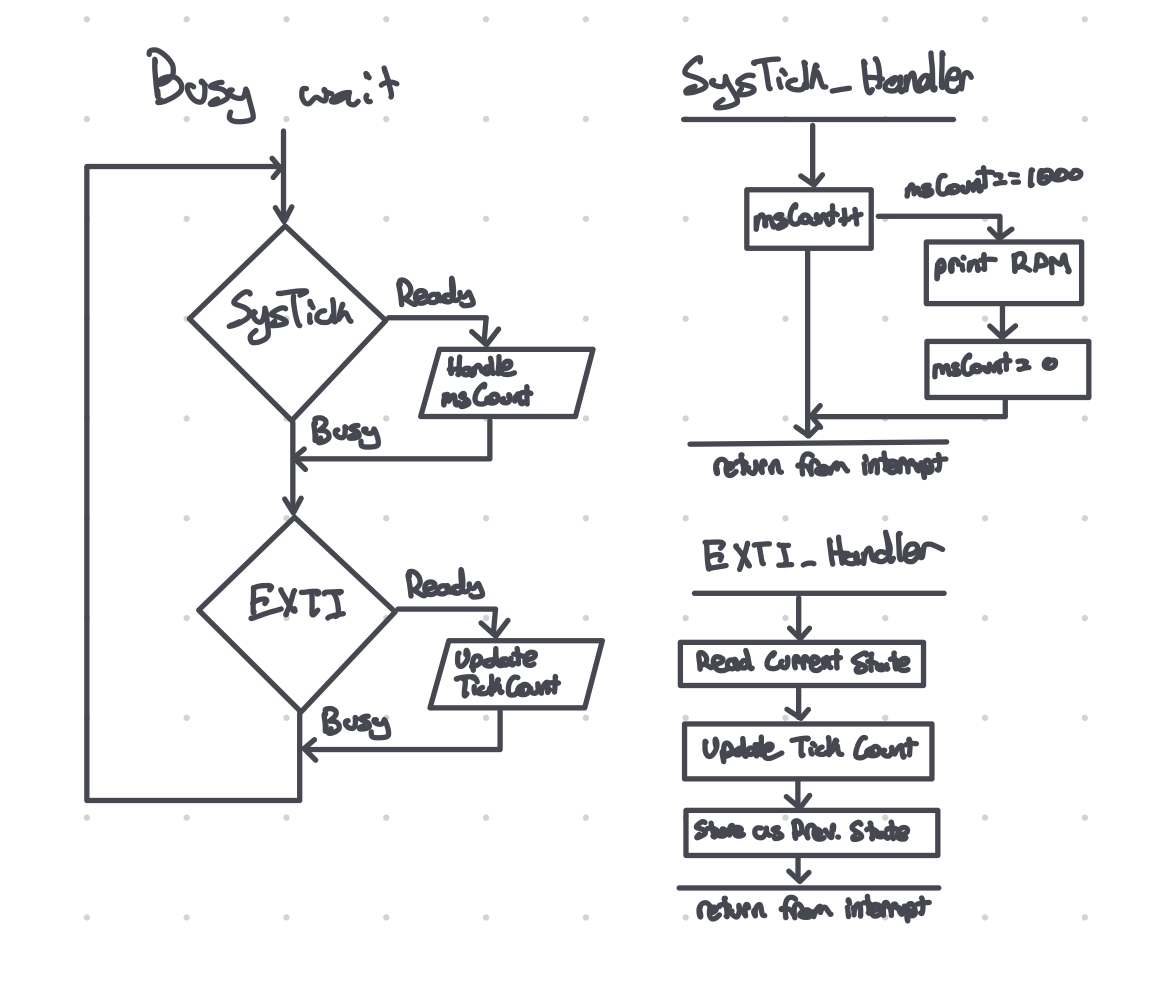 Busy wait
SysTick
Ready
Handle
msCount
Busy
EXTI
Ready
Update
TickCount
Busy
SysTick_Handler
msCount++
msCount == 1000
print RPM
msCount = 0
return from interrupt
EXTI_Handler
Read Current State
Update Tick Count
Store as Prev. State
return from interrupt